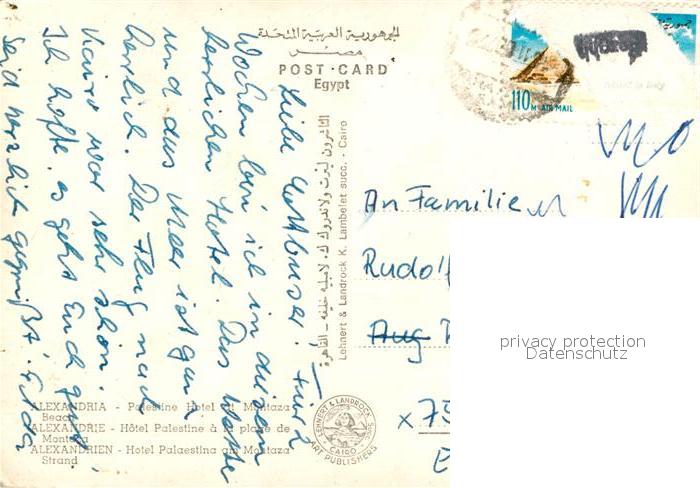 الجمهورية العربية المتحدة
مصر
POST-CARD
Egypt
110 M AIR MAIL
Für 2
Wochen bin ich in diesem
herrlichen Hotel. Das Wetter
und das Meer ist ganz
herrlich. Der Flug nach
Kairo war sehr schön.
Ich hoffe, es geht Euch gut.
Seid herzlich gegrüßt!
Lehnert & Landrock K. Lambelet succ. - Cairo
An Familie
Rudolf
Aug
x 75
privacy protection
Datenschutz
ALEXANDRIA - Palestine Hotel at Montaza
Beach
ALEXANDRIE - Hôtel Palestine à la plage de
Montaza
ALEXANDRIEN - Hotel Palaestina am Montaza
Strand
LEHNERT & LANDROCK
CAIRO
ART PUBLISHERS